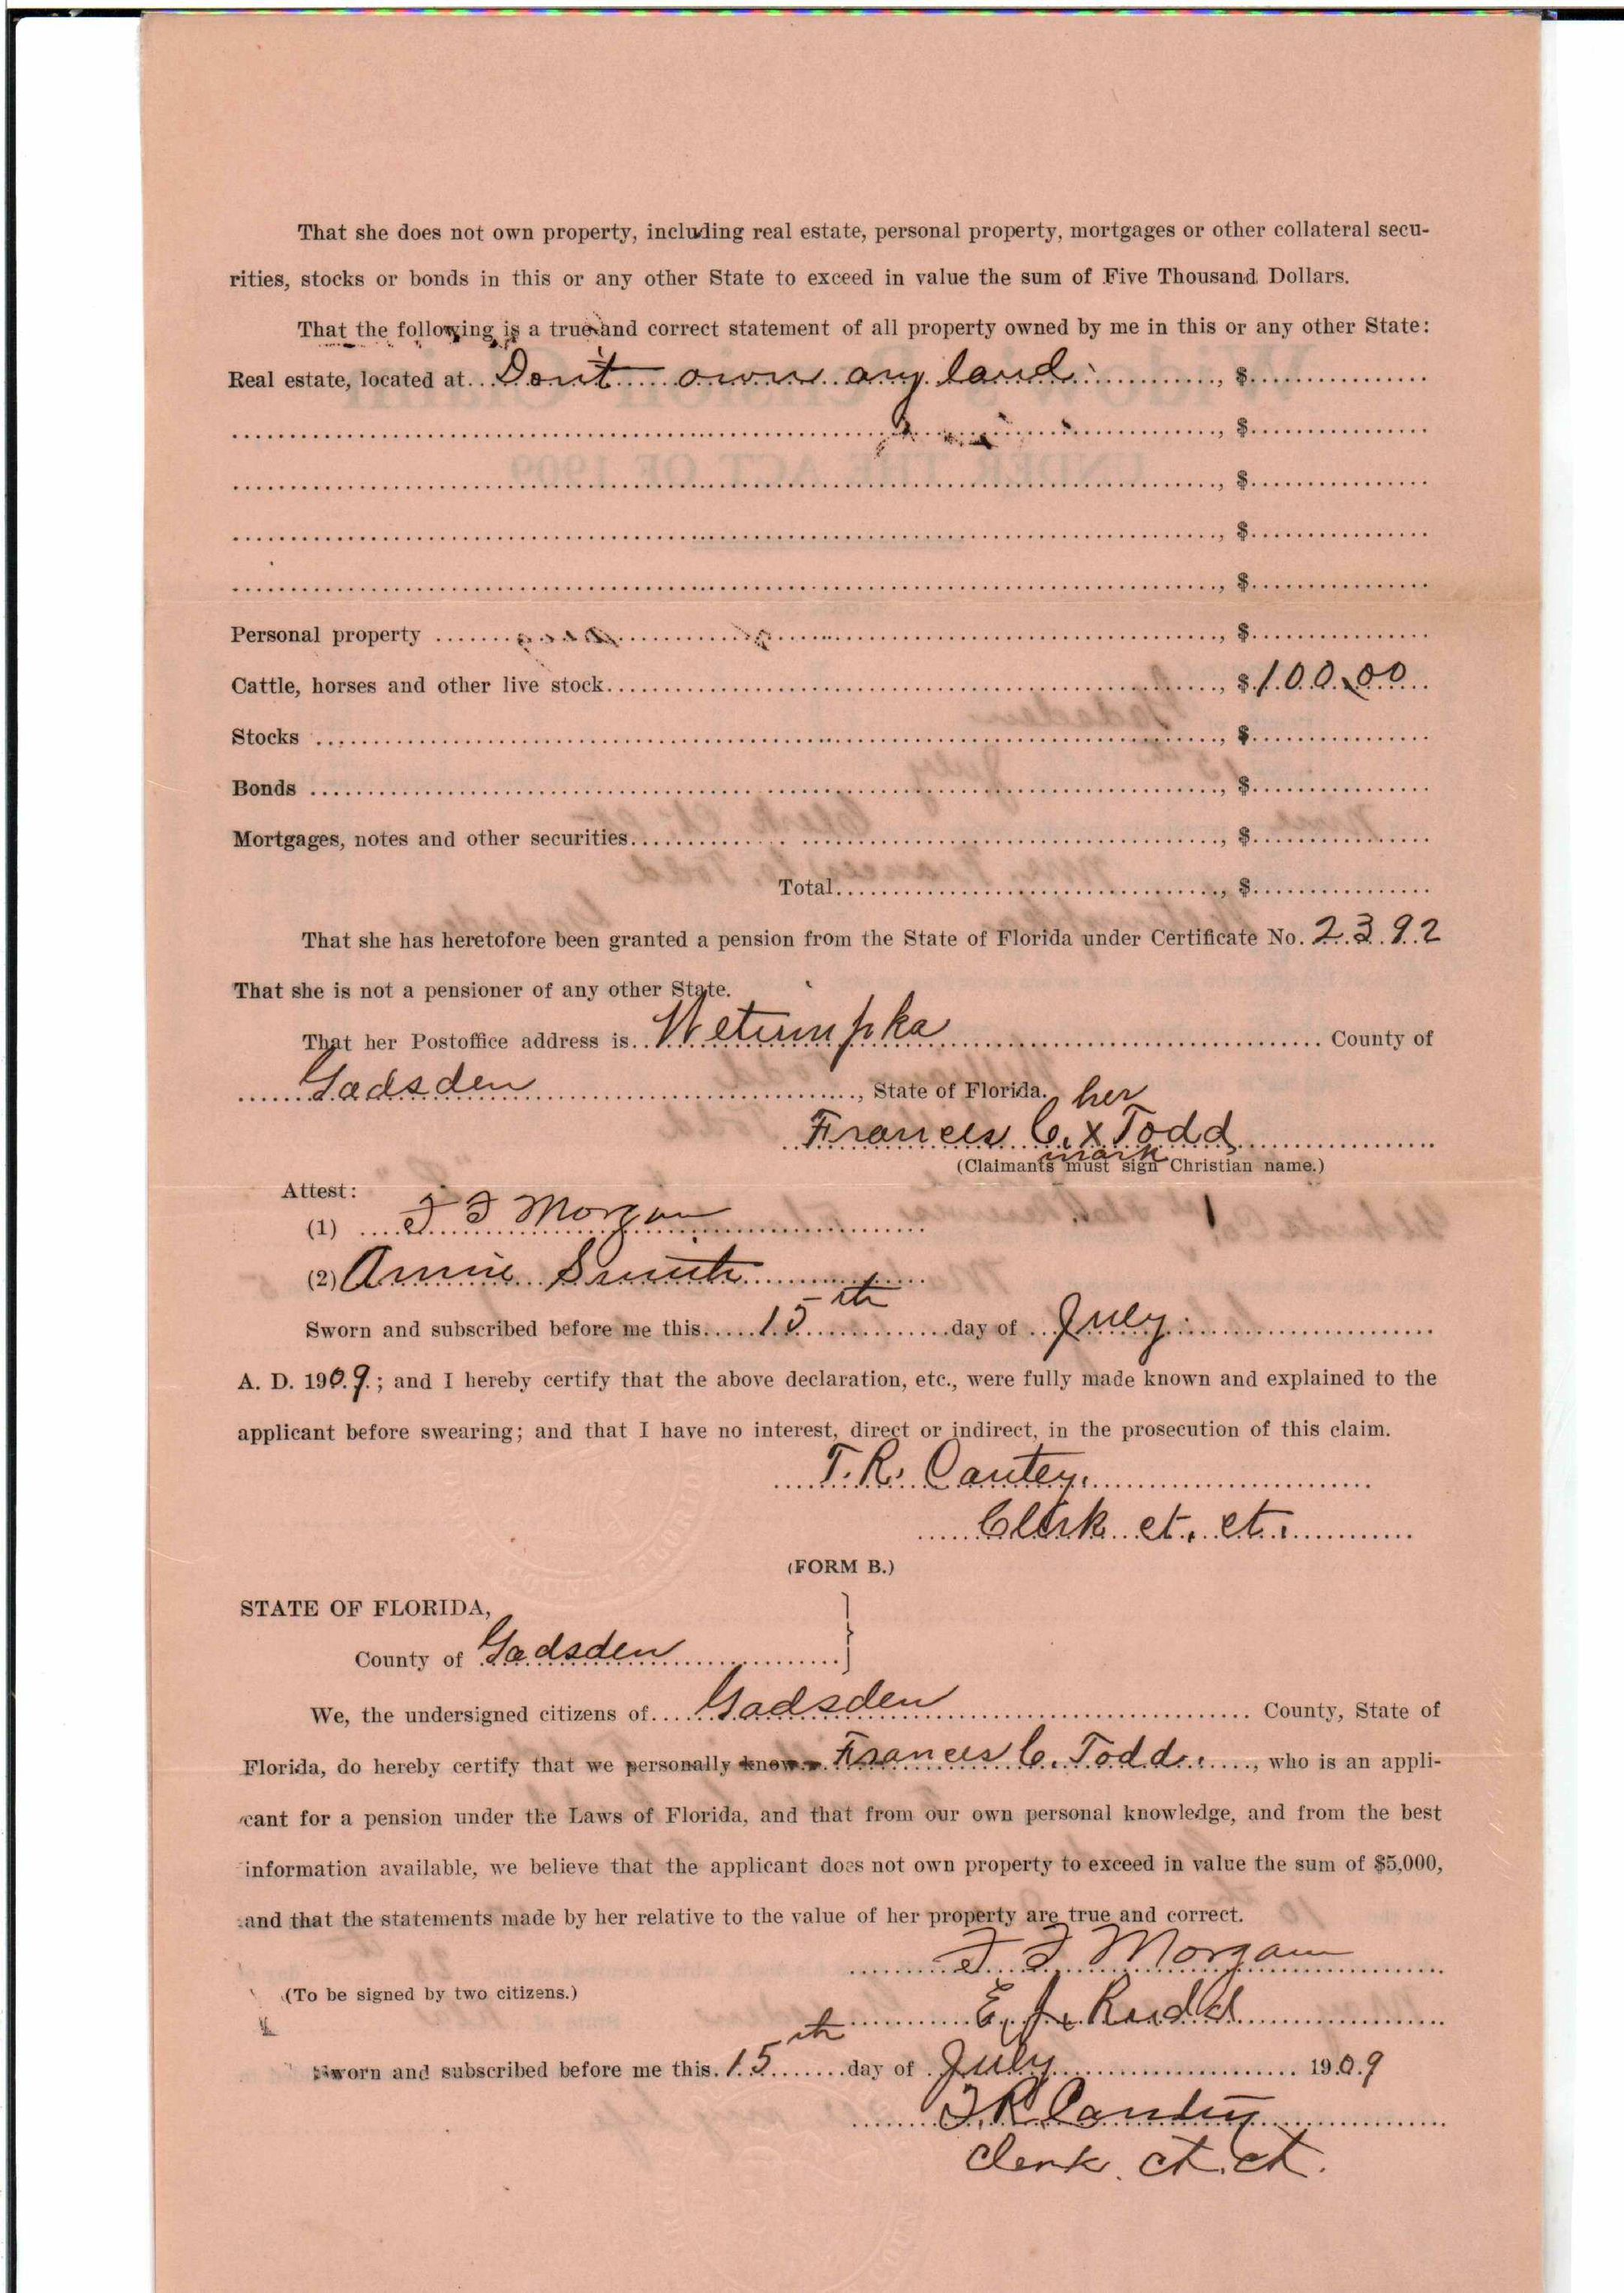 That she does not own property, including real estate, personal property, mortgages or other collateral secu-
rities, stocks or bonds in this or any other State to exceed in value the sum of Five Thousand Dollars.
That the following is a true and correct statement of all property owned by me in this or any other State:
Real estate, located at Don't own any land, $
, $
, $
, $
, $
Personal property , $
Cattle, horses and other live stock , $100.00
Stocks , $
Bonds , $
Mortgages, notes and other securities , $
Total , $
That she has heretofore been granted a pension from the State of Florida under Certificate No. 2392
That she is not a pensioner of any other State.
That her Postoffice address is Wetumpka County of
Gadsden, State of Florida.
her
Frances C. x Todd
mark
(Claimants must sign Christian name.)
Attest:
(1) F F Morgan
(2) Annie Smith
Sworn and subscribed before me this 15th day of July
A. D. 1909; and I hereby certify that the above declaration, etc., were fully made known and explained to the
applicant before swearing; and that I have no interest, direct or indirect, in the prosecution of this claim.
T. R. Cantey.
Clerk ct. ct.
(FORM B.)
STATE OF FLORIDA,
County of Gadsden
We, the undersigned citizens of Gadsden County, State of
Florida, do hereby certify that we personally know Frances C. Todd, who is an appli-
cant for a pension under the Laws of Florida, and that from our own personal knowledge, and from the best
information available, we believe that the applicant does not own property to exceed in value the sum of $5,000,
and that the statements made by her relative to the value of her property are true and correct.
F F Morgan
(To be signed by two citizens.)
E.
Sworn and subscribed before me this 15th day of July 1909
T. R. Cantey
Clerk ct. ct.